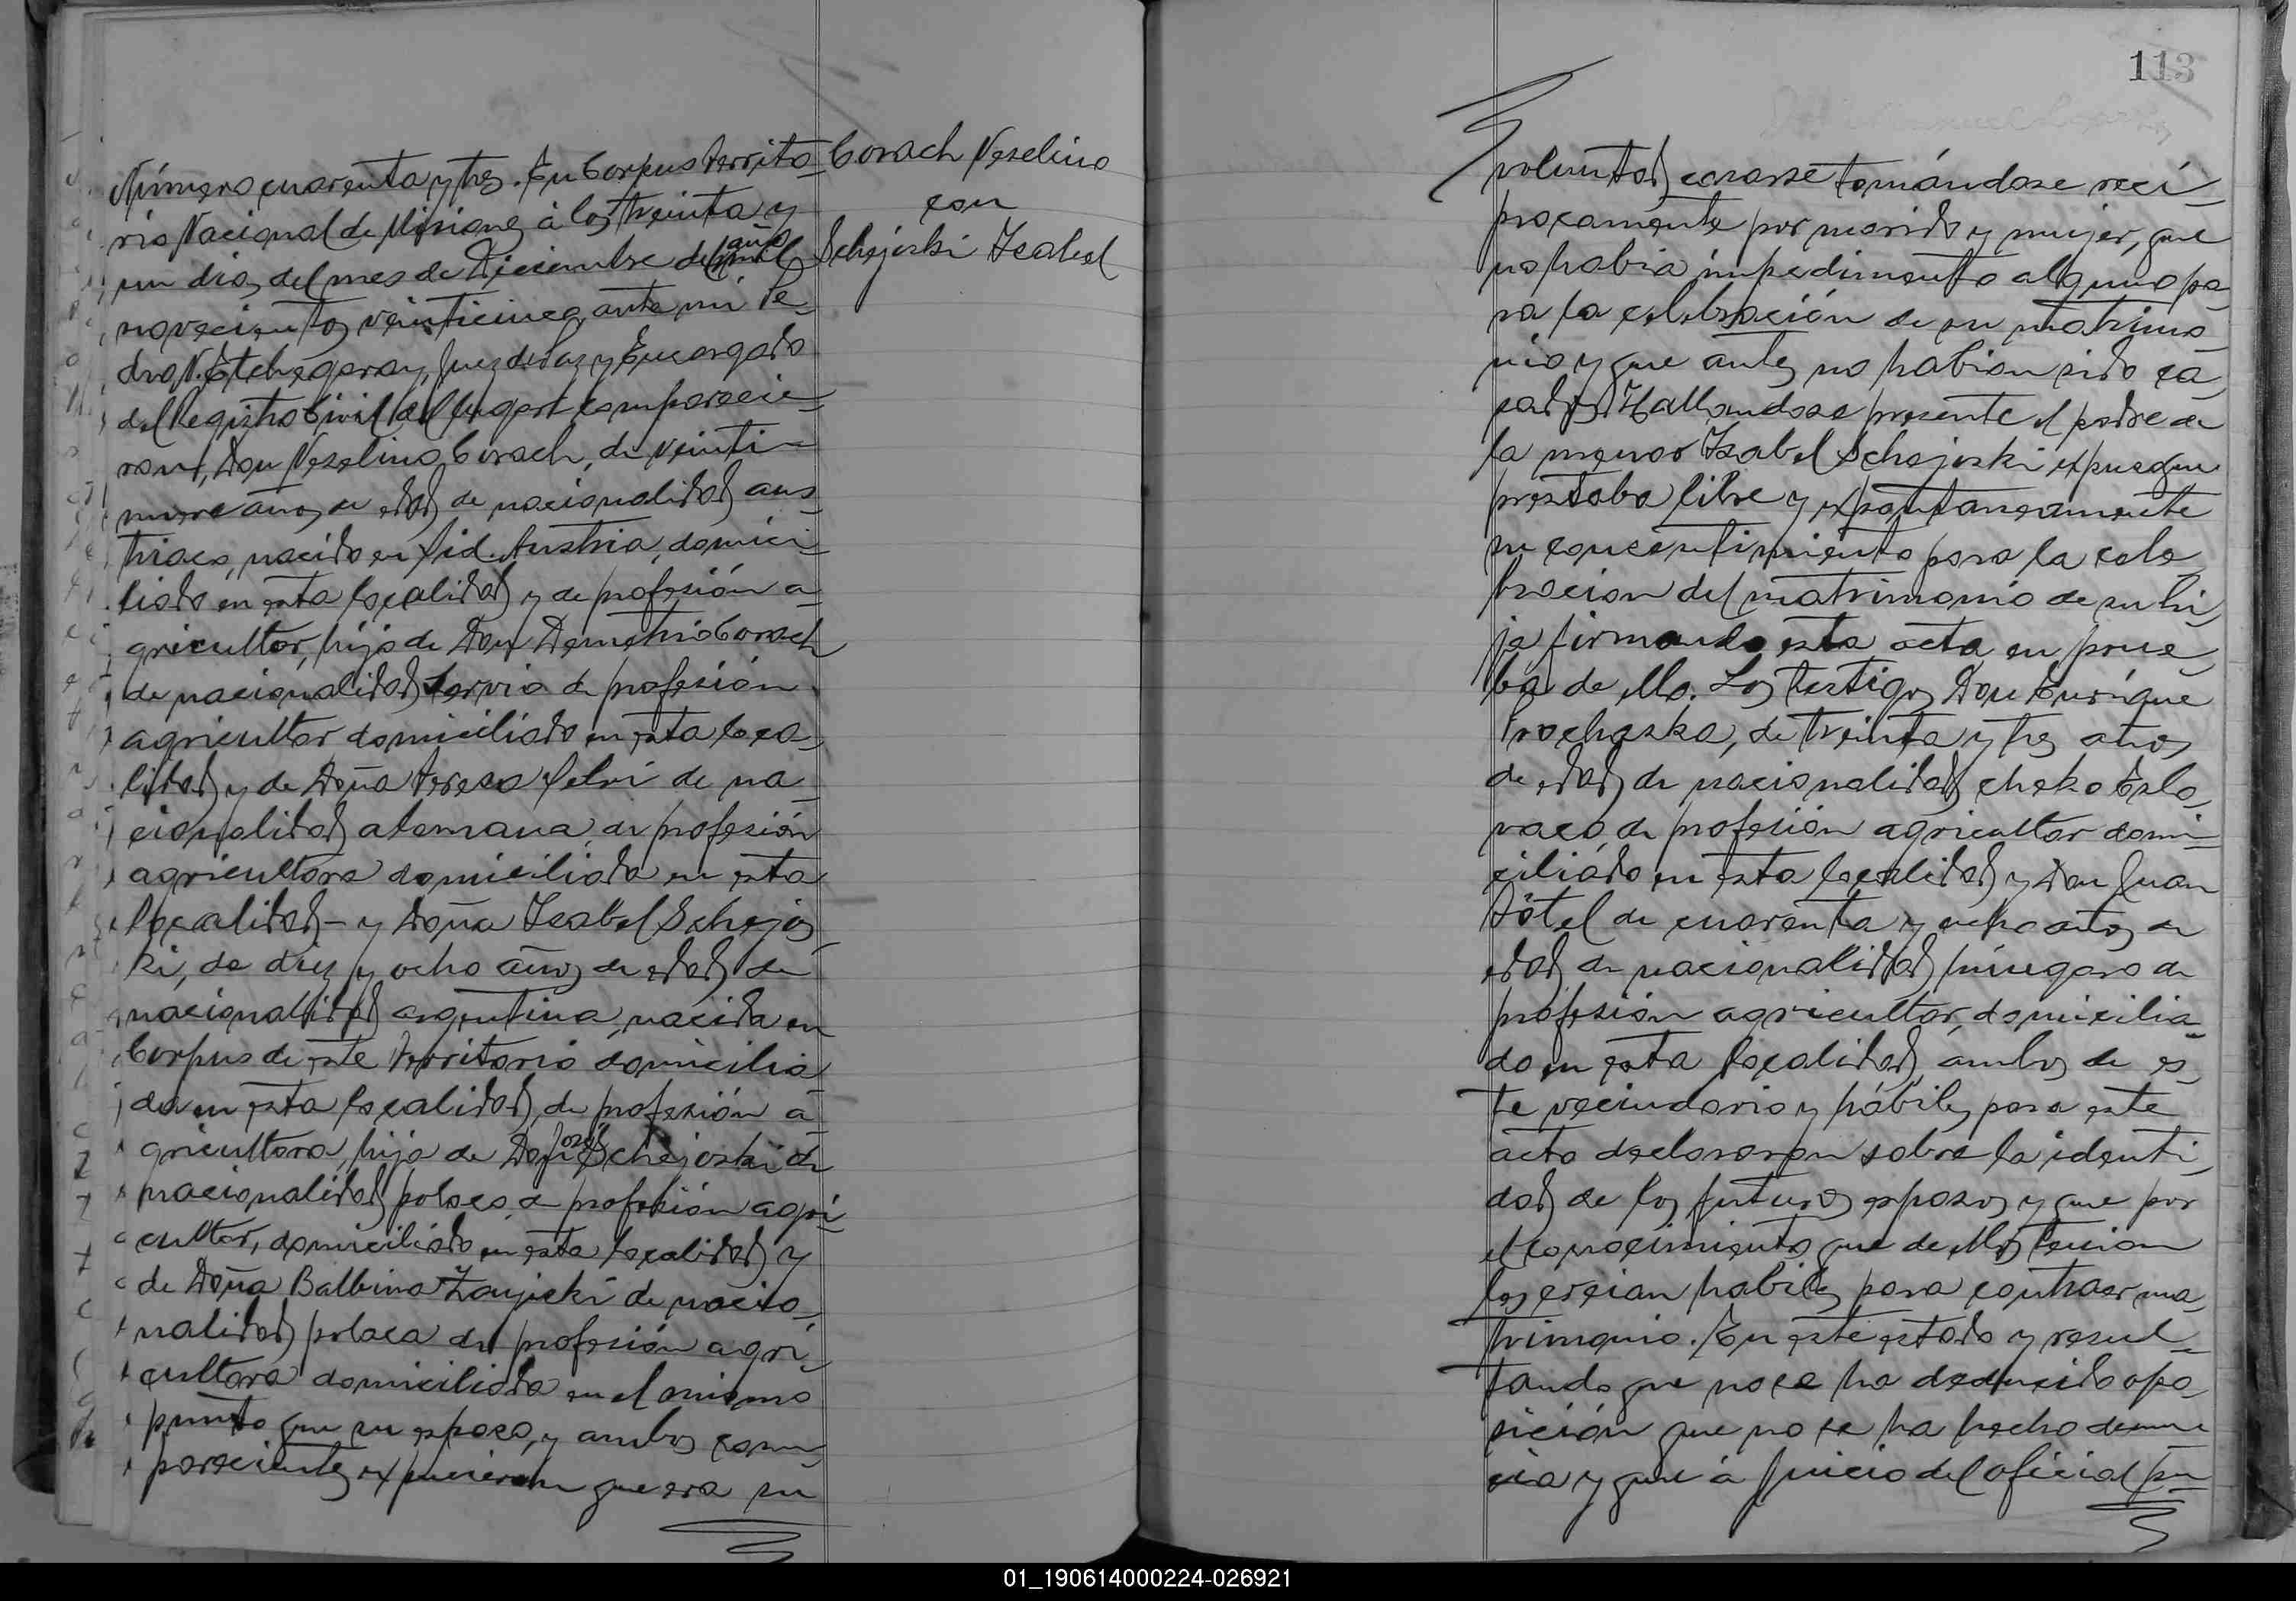 Número cuarenta y tres. En Corpus territo-
rio Nacional de Misiones á los treinta y
un dias del mes de Diciembre del año mil
novecientos veinticinco, ante mi Pe-
dro N. Etchegaray, Juez de Paz y Encargado
del Registro Civil del lugar comparecie-
ron, Don Veselino Corach, de veinti-
nueve años de edad de nacionalidad aus-
triaco, nacido en Austria, domici-
liado en esta localidad y de profesión a-
gricultor, hijo de Don Demetrio Corach
de nacionalidad servio de profesión
agricultor domiciliado en esta loca-
lidad y de Doña teresa de na-
cionalidad alemana de profesión
agricultora domiciliada en esta
localidad- y Doña Isabel Schejos
ki, de diez y ocho años de edad de
nacionalidad argentina, nacida en
Corpus de este territorio domicilia
da en esta localidad, de profesión a-
gricultora, hija de Don José Schejoski de
nacionalidad polaco de profesión agri-
cultor, domiciliado en esta localidad y
de Doña Balbina Zayicki de nacio-
nalidad polaca de profesión agri-
cultora domiciliada en el mismo
punto que su esposo, y ambos com-
parecientes expusieron que era su
Corach Veselino
con
Schejoski Isabel
113
voluntad casarse tomándose recí-
procamente por marido y mujer, que
no habia impedimento alguno pa-
ra la celebración de su matrimo-
nio y que antes no habian sido ca-
sados. Hallandose presente el padre de
la menor Isabel Schejoski expuso que
prestaba libre y expontaneamente
su consentimiento para la cele-
bracion del matrimonio de su hi-
ja firmando esta acta en prue-
ba de ello. Los testigos Don Enrique
Prochaska, de treinta y tres años
de edad de nacionalidad cheko Eslo-
vaco de profesión agricultor domi-
ciliado en esta localidad y Don Juan
de cuarenta y ocho años de
edad de nacionalidad húngaro de
profesión agricultor, domicilia-
do en esta localidad, ambos de es-
te vecindario y hábiles para este
acto declararon sobre la identi-
dad de los futuros esposos y que por
el conocimiento que de ellos tenian
los creian habiles para contraer ma-
trimonio. En este estado y resul-
tando que no se ha deducido opo-
sición que no se ha hecho denun-
cia y que á juicio del oficial pú-
01_190614000224-026921